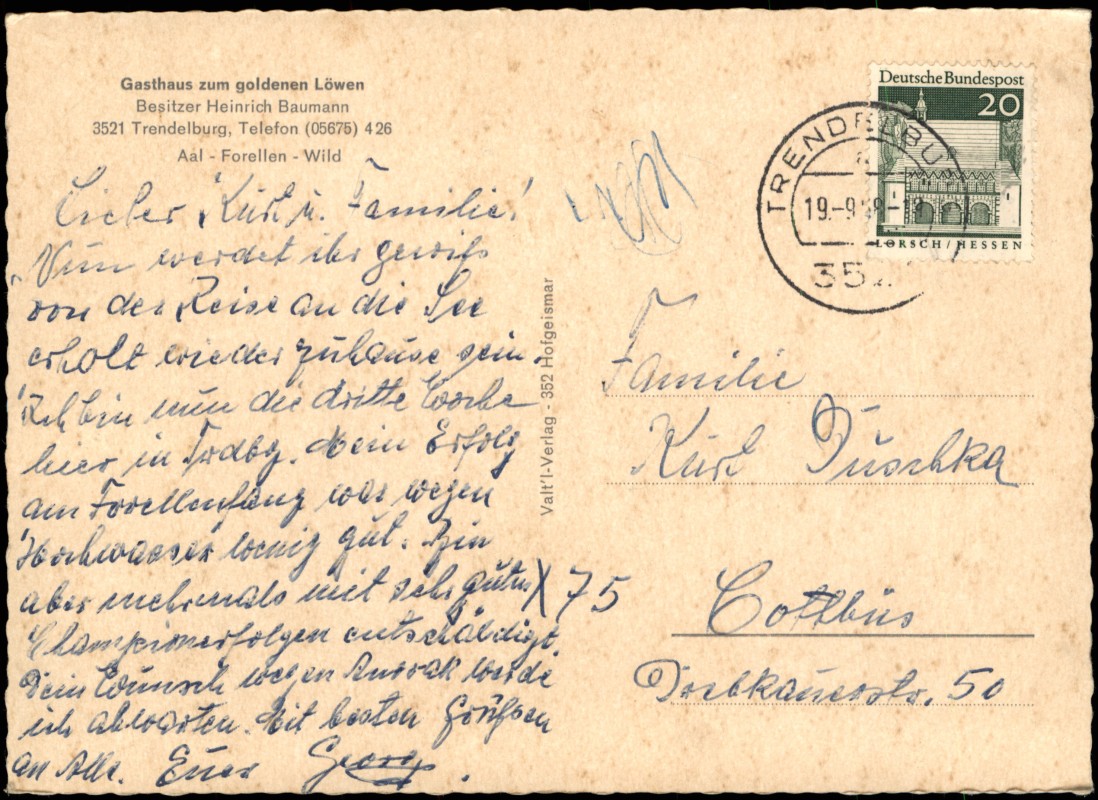 Gasthaus zum goldenen Löwen
Besitzer Heinrich Baumann
3521 Trendelburg, Telefon (05675) 426
Aal - Forellen - Wild
Lieber Kurt u. Familie!
Nun werdet ihr gewiß
von der Reise an die See
erholt wieder zuhause sein.
Ich bin nun die dritte Woche
hier in Trdbg. Mein Erfolg
am Forellenfang war wegen
Hochwasser wenig gut. Bin
aber mehrmals mit sehr guten
Championerfolgen entschädigt.
Dein Wunsch wegen Anorak werde
ich abwarten. Mit besten Grüßen
an Alle. Euer Georg.
Valt'l-Verlag - 352 Hofgeismar
Deutsche Bundespost
20
LORSCH/HESSEN
TRENDELBU
19.-9.68-1
352
Familie
Kurt Duschka
X 75
Cottbus
Drebkauerstr. 50